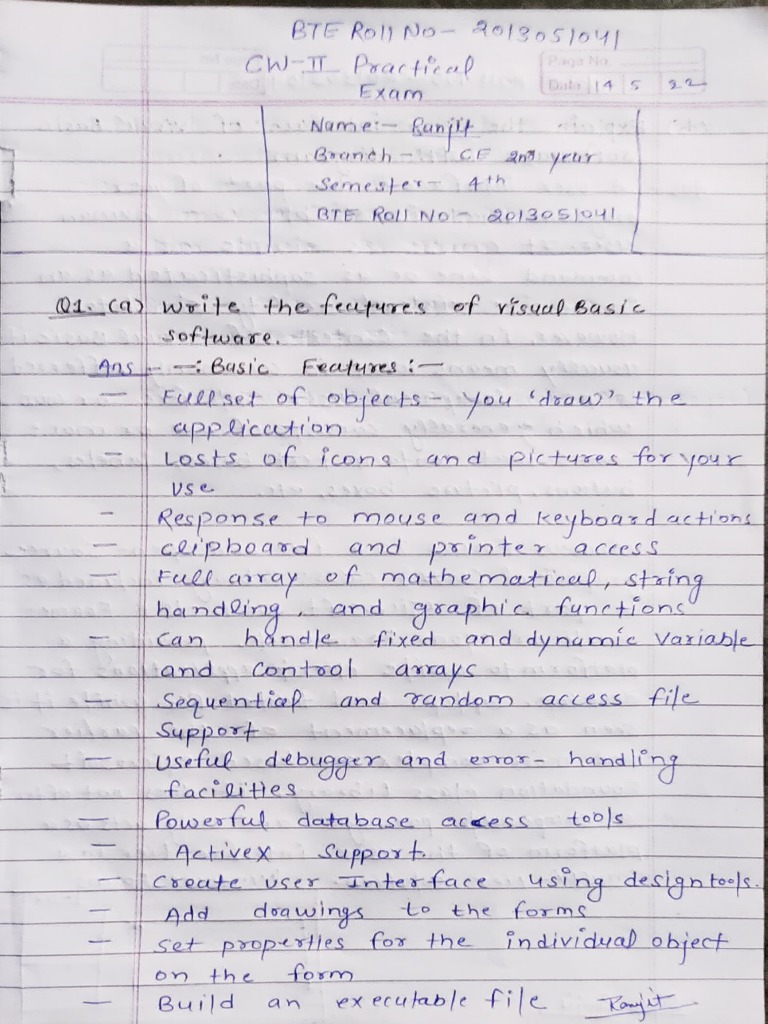 BTE Roll No- 2013051041
CW-II Practical
Page No.
Exam
Date 14 5 22
Name:- Ranjit
Branch - C.E 2nd year
Semester- 4th
BTE Roll No- 2013051041
Q1. (a) Write the features of visual Basic
software.
Ans - -: Basic Features :-
- Full set of objects- you 'draw' the
application
- Losts of icons and pictures for your
use
- Response to mouse and keyboard actions
- clipboard and printer access
- Full array of mathematical, string
handling, and graphic functions
- Can handle fixed and dynamic variable
and control arrays
- Sequential and random access file
Support
- Useful debugger and error- handling
facilities
- Powerful database access tools
- ActiveX Support.
- Create user Interface using design tools.
- Add drawings to the forms
- Set properties for the individual object
on the form
- Build an executable file Ranjit